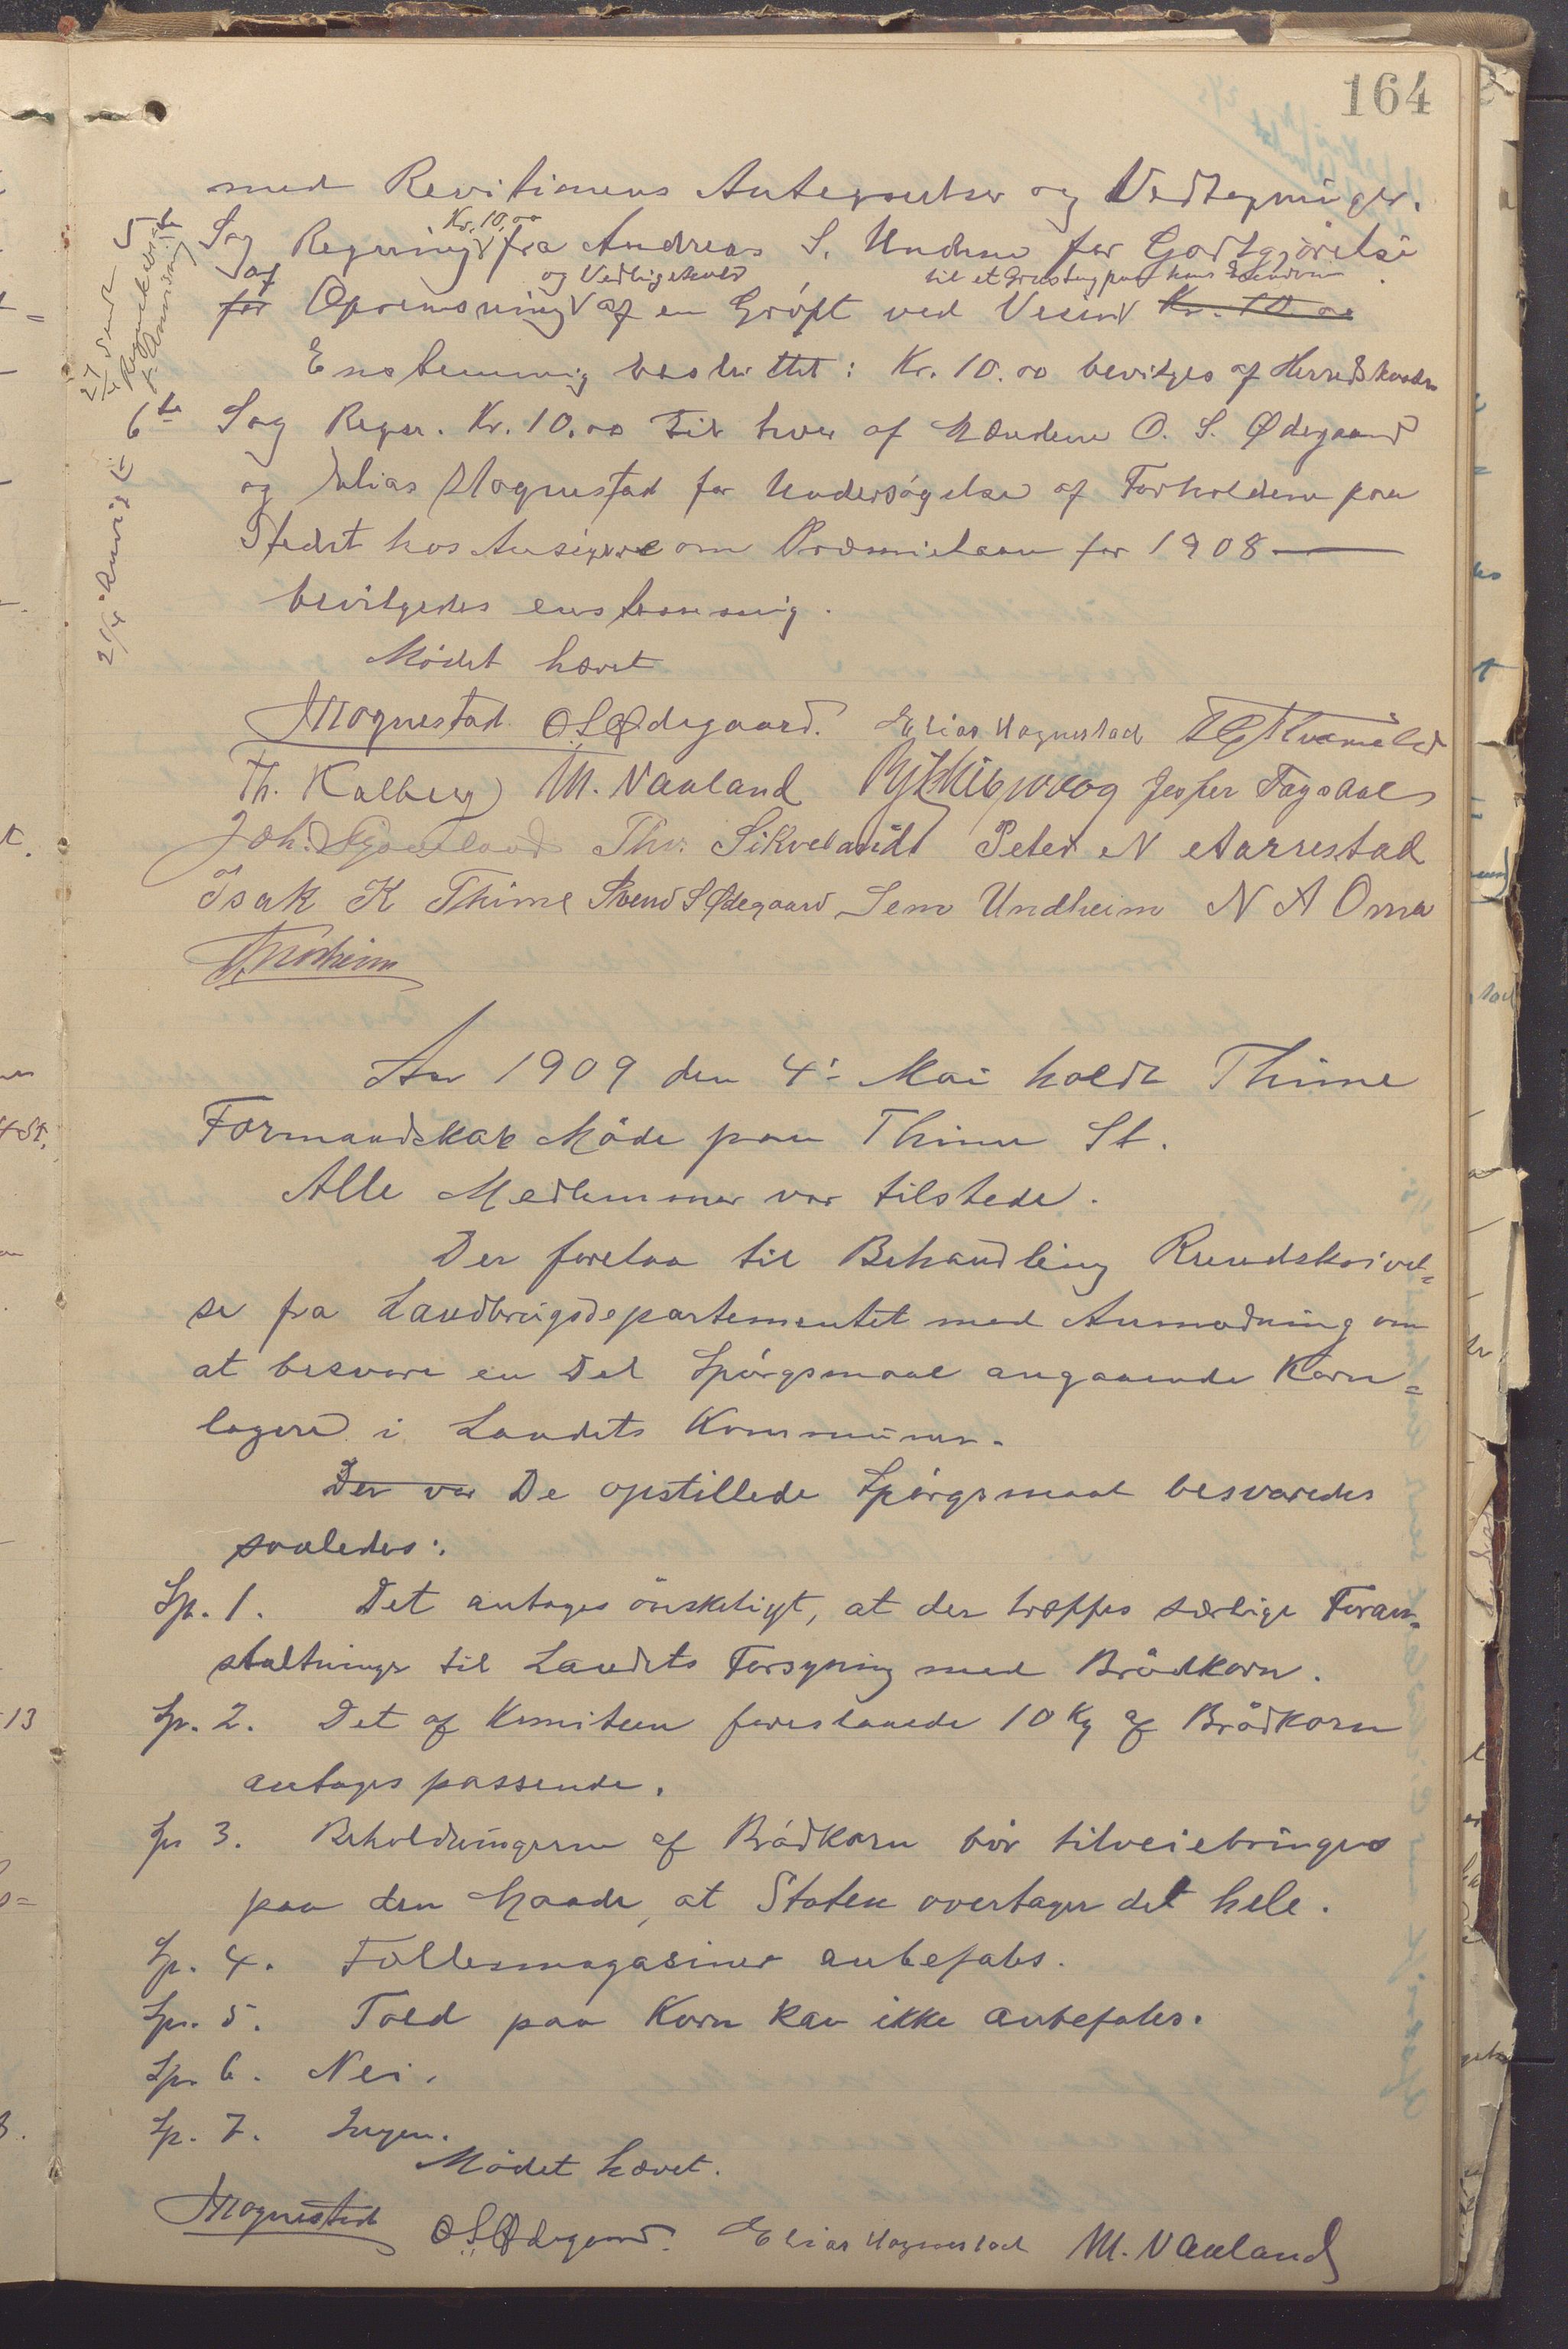 164
med Revisionens Antegnelser og Vedtegninger.
5te Sag Regning Kr. 10,00 fra Andreas S. Undem for Godtgjörelse
for af Oprensning og Vedligehold af en Gröft ved Veien Kr. 10.00
Enstemmig besluttet: Kr. 10.00 bevilges af Herredskassen
6te Sag Regn. Kr. 10.00 til hver af Mændene O. S. Ødegaard
og Elias Hognestad for Undersögelse af Forholdene paa
Stedet hos Ansøgere om Præmielaan for 1908
bevilgedes enstemmig.
21/4 Anvist
Mödet hævet
Hognestad OSØdegaard. Elias Hognestad
Th. Kalberg M. Vaaland Jesper Fagdal
Joh. Thv. Sikvelandt Peter N Aarrestad
Isak K Thime Svend S Ødegaard Sem Undheim N A Oma
Aar 1909 den 4'- Mai holdt Thime
Formandskab Möde paa Thime St.
Alle Medlemmer var tilstede.
Der forelaa til Behandling Rundskrivel=
se fra Landbrugsdepartementet med Anmodning om
at besvare en Del Spörgsmaal angaaende Korn=
lagere i Landets Kommuner.
Der var De opstillede Spörgsmaal besvaredes
saaledes:
Sp. 1. Det antages önskeligt, at der træffes særlige Foran-
staltninger til Landets Forsyning med Brödkorn.
Sp. 2. Det af Komiteen foreslaaede 10 Kg af Brödkorn
antages passende.
Sp 3. Beholdningerne af Brödkorn bör tilveiebringes
paa den Maade, at Staten overtager det hele.
Sp. 4. Fællesmagasiner anbefales.
Sp. 5. Told paa Korn kan ikke anbefales.
Sp. 6. Nei.
Sp. 7. Ingen.
Mödet hævet.
Hognestad OSØdegaard. Elias Hognestad M. Vaaland